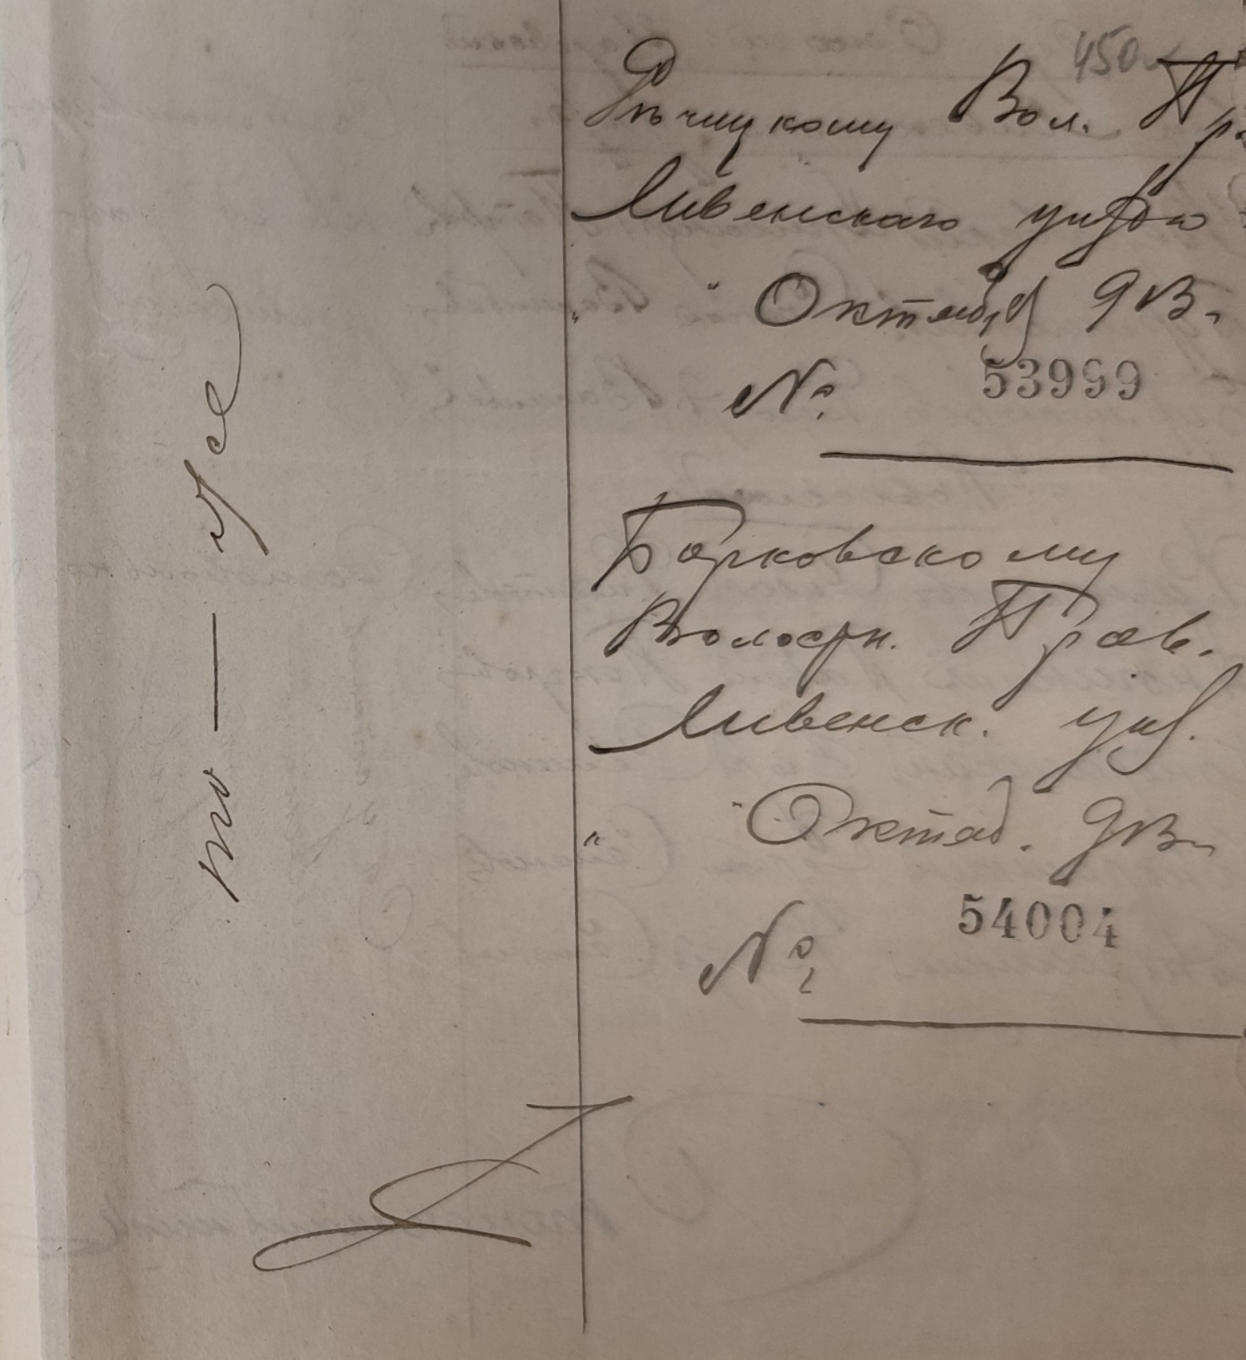 450
Рѣчицкому Вол. Пр.
Ливенскаго уѣзда
" Октября 9 В.
№ 53999
Борковскому
Волостн. Прав.
Ливенск. уѣз.
" Октяб. 9 В.
№ 54004
то — же